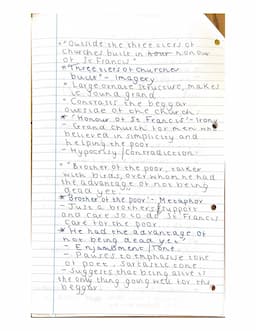 • "Outside the three tiers of
churches built in honour
of St Francis"
* "Three tiers of churches
built" - Imagery
• Large ornate structure, makes
it sound grand
• Contrasts the beggar
outside of the church
* "Honour of St Francis" - Irony
- Grand church for man who
believed in simplicity and
helping the poor
- Hypocrisy / Contradiction

• "Brother of the poor, talker
with birds, over whom he had
the advantage of not being
dead yet"
* "Brother of the poor" - Metaphor
- Just as brothers support
and care so to do St Francis
care for the poor
* "He had the advantage of
not being dead yet"
- Enjambment / Tone
- Pauses to emphasise tone
of poet. Sarcastic tone
- Suggests that being alive is
the only thing going well for the
beggar